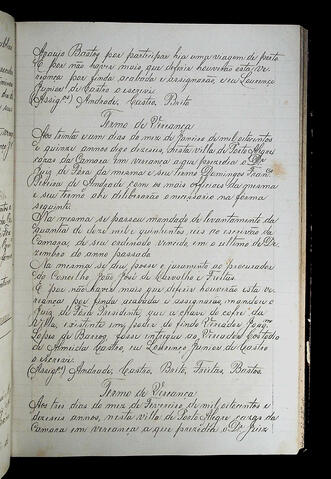 Araujo Bastos por participar hia uma viagem de porte
E por não haver mais que deferir houverão esta Ve-
riança por finda acabada e assignarão, eu Lourenço
Junior de Castro o escrevi
(Assig.os) Andrade, Castro, Brito
Termo de Veriança
Aos trinta e um dias do mez de Janeiro de mil oitocentos
e quinze annos digo dezeseis, nesta villa de Porto Alegre
e casas da Camara em veriança a que prezedia o Dr
Juiz de Fora da mesma e seu termo Domingos Fran.co
Pereira de Andrade com os mais officiaes da mesma
e seu termo ahi deliberarão o necessario na forma
seguinte
Na mesma se passou mandado de levantamento da
quantia de doze mil e quinhentos reis ao escrivão da
Camara, de seu ordenado vencido em o ultimo de De-
zembro do anno passado
Na mesma se deu posse e juramento ao procurador
do Concelho João José de Carvalho e Freitas
E por não haver mais que deferir houverão esta ve-
riança por finda acabada e assignarão, mandou o
Juiz de Fora Presidente, que a chave do cofre da
Villa, existente em poder do findo Vereador Joaq.m
Lopes de Barros, fosse entregue ao Vereador Custodio
de Almeida Castro, eu Lourenço Junior de Castro
o escrevi
(Assig.os) Andrade, Castro, Brito, Freitas, Bastos
Termo de Veriança
Aos tres dias do mez de Fevereiro de mil oitocentos e
dezeseis annos, nesta villa de Porto Alegre casas da
Camara em vereança a que prezedio o Dr. Juiz